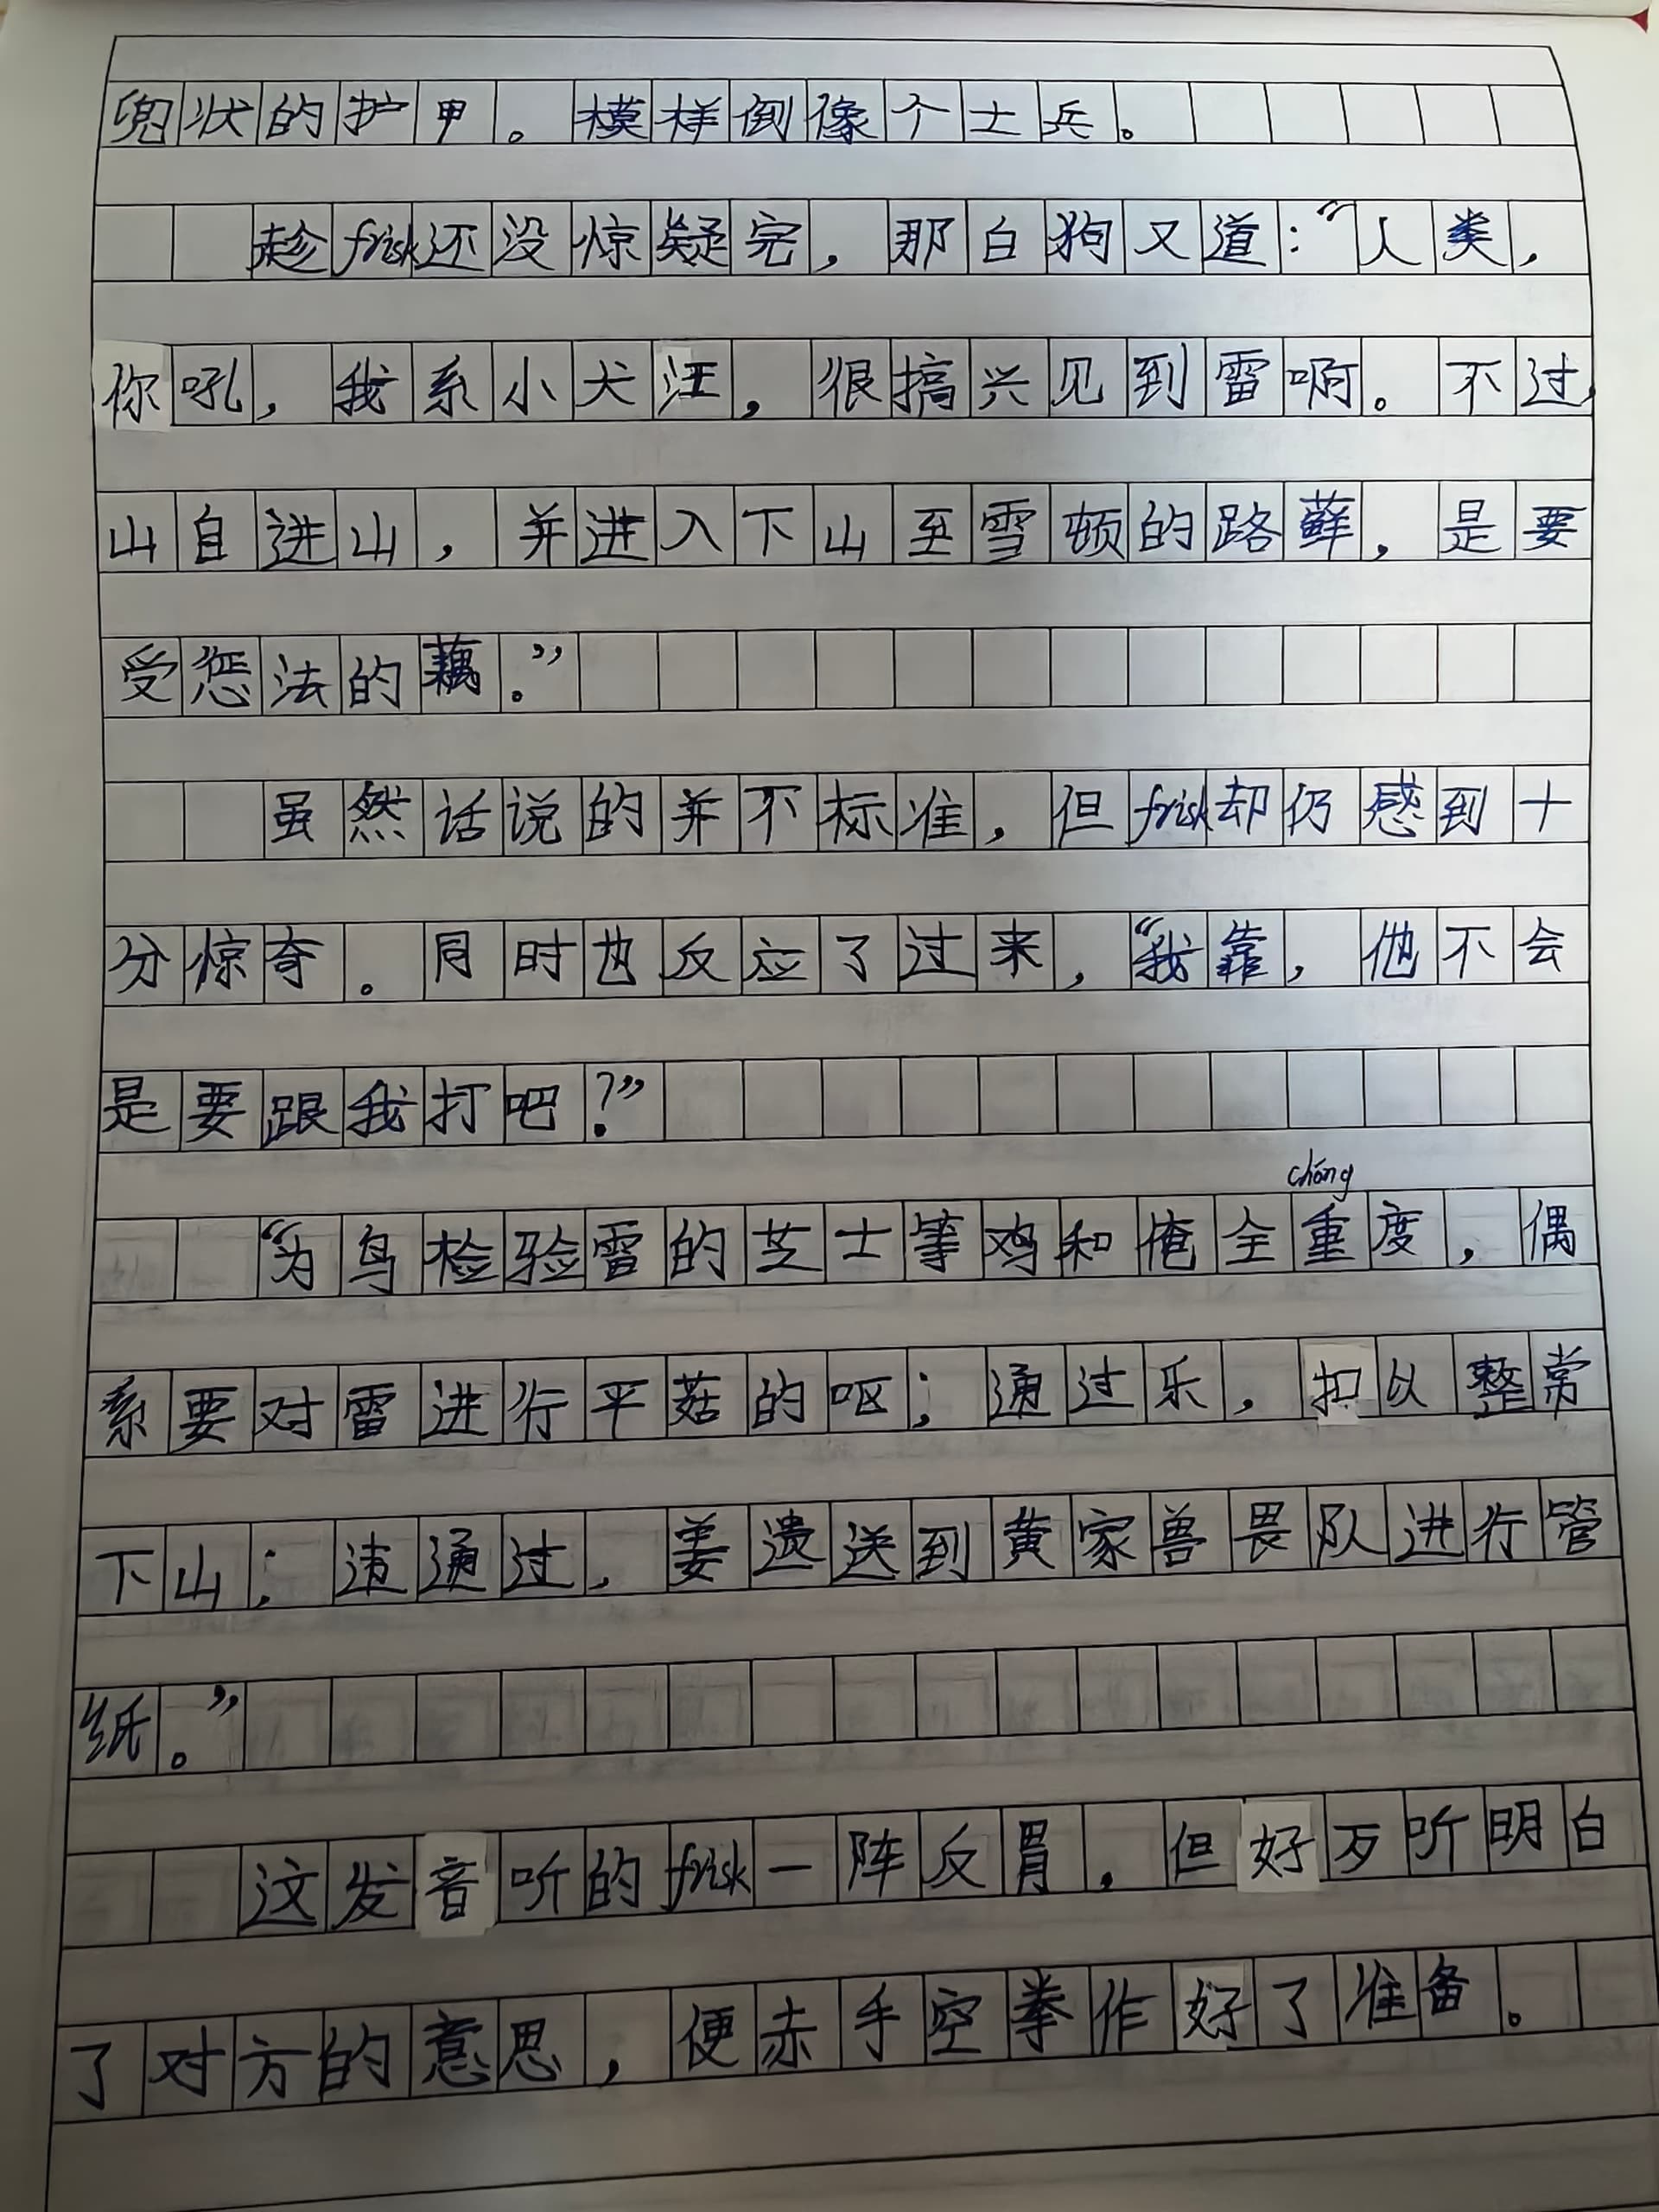 兜状的护甲。模样倒像个士兵。
趁frisk还没惊疑完，那白狗又道：“人类，
你吼，我系小犬汪，很搞兴见到雷啊。不过，
山自进山，并进入下山至雪顿的路藓，是要
受惩法的藕。”
虽然话说的并不标准，但frisk却仍感到十
分惊奇。同时也反应了过来，“我靠，他不会
是要跟我打吧？”
chóng
“为鸟检验雷的芝士等鸡和俺全重度，偶
系要对雷进行平菇的呕；通过乐，扣以整常
下山；违通过，姜遗送到黄家兽畏队进行管
纸。”
这发音听的frisk一阵反胃，但好歹听明白
了对方的意思，便赤手空拳作好了准备。